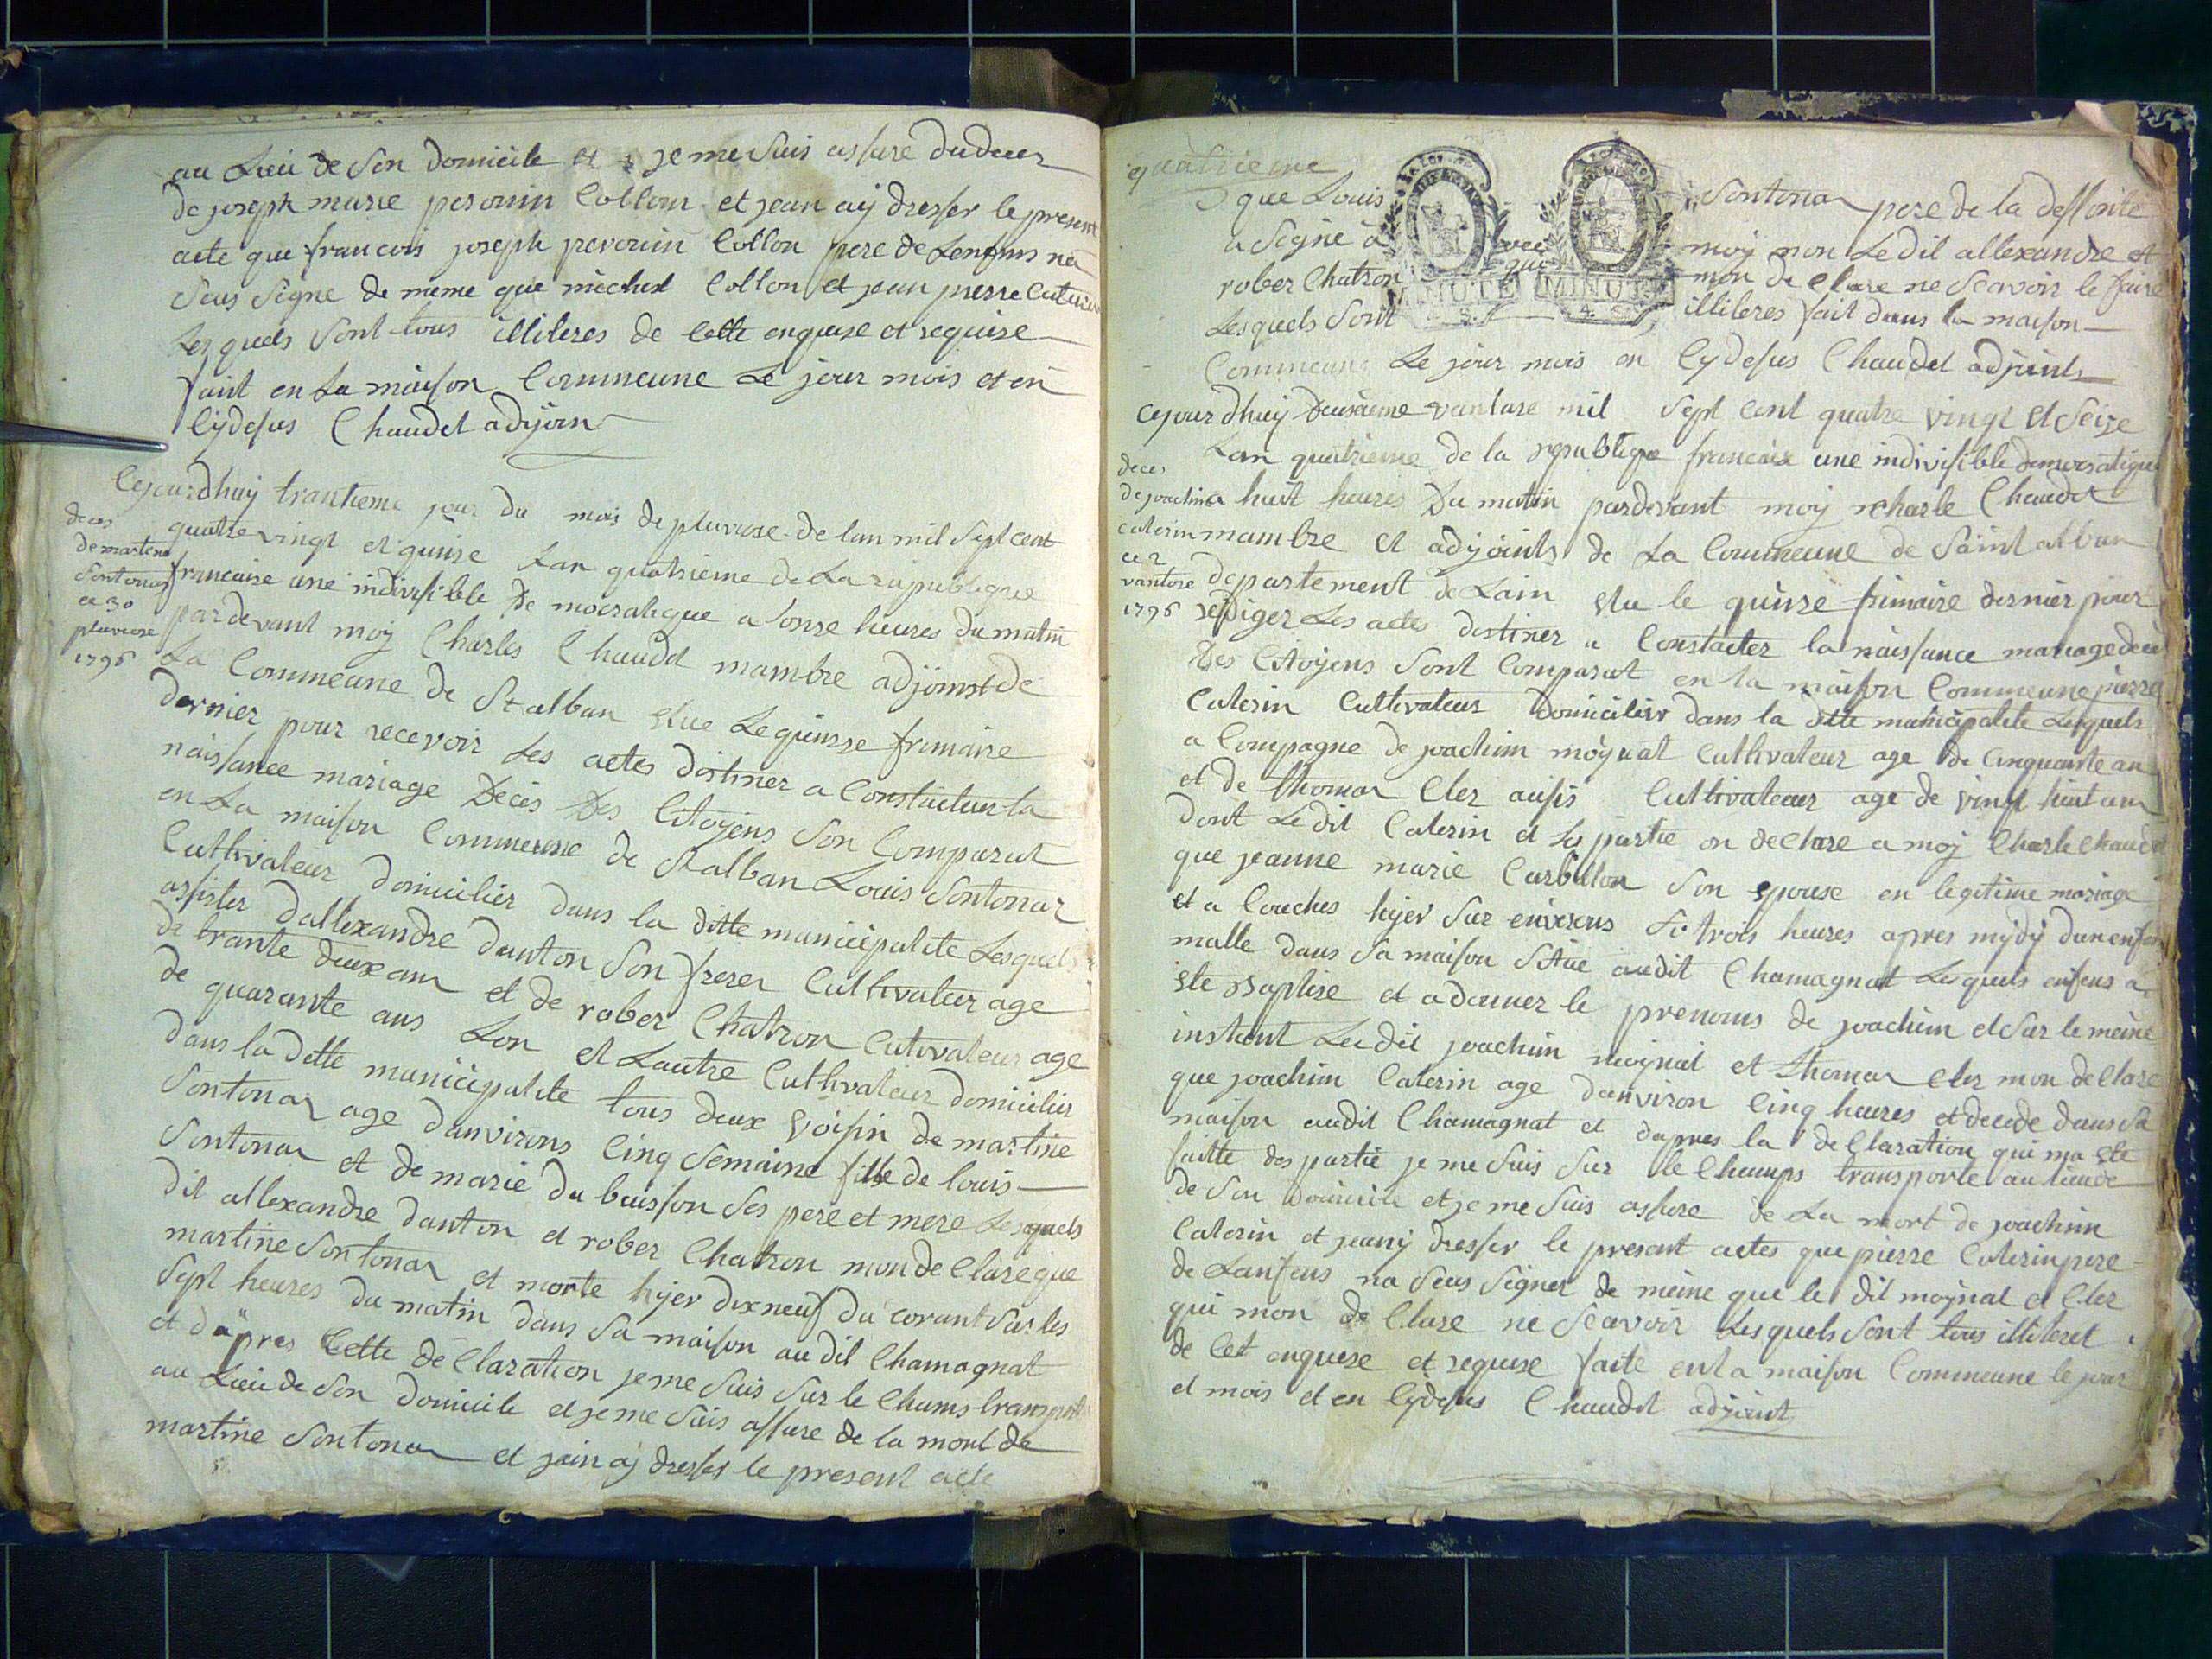 au Lieu de Son domicile et je me Suis assure du deces
de joseph marie perouin Collon et jean aij dresser le present
acte que francois joseph perouin Collon pere de Lenfans na
Sous Signe de meme que michel Collon et jean pierre Caterin
Les quels Sont tous illiteres de Cette enquise et requise
fait en La maison Commeune Le jour mois et en
Cydesus Chaudet adjoin
deces
de martine
Sontonas
ce 30
pluviose
1796
Cejourdhuij trantieme jour du mois de pluviose de lan mil Sept cent
quatre vingt et quinse Lan quatrieme de La republique
francaise une indivisible De mocratique a onse heures du matin
par devant moij Charles Chaudet mambre adjoint de
La Commeune de St alban elue Le quinsse frimaire
dernier pour recevoir Les actes distiner a Constacteur la
naissance mariage Deces Des Citoyens Son Comparut
en La maison Commeune de St alban Louis Sontonar
Cultivateur domicilier dans la ditte municipalite Lesquels
assister dallexandre danton Son frerer Cultivateur age
de trante deux an et de rober Chatron Cutivateur age
de quarante ans Lon et Lautre Cultivateur domicilier
dans la dette municipalite tous deux voisin de martine
Sontonar age danvirons Cinq Semaine fille de louis
Sontonar et de marie du buisson Ses pere et mere Lesquels
dit allexandre danton et rober Chatron mon de Clare que
martine Sontonar et morte hyer dix neuf du corant Sur les
Sept heures du matin dans Sa maison audit Chamagnat
et dapres Cette de Claration je me Suis Sur le Chams transporte
au Lieu de Son domicile et je me Suis assure de la mort de
martine Sontonar et jain aj dresser le present acte
quatrieme
que Louis Sontonar pere de la deffonte
a Signe avec moij non Le dit allexandre et
rober Chatron qui mon de Clare ne Scavoir le faire
Lesquels Sont illiteres fait dans la maison
Commeune Le jour mois en Cydesus Chaudet adjoint
MINUTE MINUTE
deces
de joachim
caterin
ce 2
vantose
1796
Cejourdhuij deuxieme vantose mil Sept Cent quatre vingt et Seize
Lan quatrieme de la republique francaise une indivisible democratique
a huit heures Du matin pardevant moij charle Chaudet
mambre et adjoints de La Commeune de Saint alban
departement de Lain elu le quinse frimaire dernier pour
rediger Les actes distiner a Constacter la naissance mariage deces
Des Citoyens Sont Comparut en la maison Commeune pierre
Caterin Cultivateur Domicilier dans la ditte municipalite Lesquels
a Compagne de joachim moynat Cultivateur age de Cinquante an
et de thomas Cler aussi Cultivateur age de vingt huit an
dont Ledit Caterin et Sa partie on de Clare a moj Charle Chaudet
que jeanne marie Carbillon Son epouse en legitime mariage
et a Couches hyer Sur enixrons trois heures apres mydy dun enfan
malle dans Sa maison Situe audit Chamagnat Lesquels enfens a
ete Baptise et a donner le prenoms de joachim et Sur le meme
instant Ledit joachim moynat et thomas Cler mon de Clare
que joachim Caterin age danviron Cinq heures et decede dans Sa
maison audit Chamagnat et dapres la de Claration qui ma ete
faitte des partie je me Suis Sur le Champs transporte au lieu de
de Son domicile et je me Suis assure de La mort de joachim
Caterin et jeanij dresser le present actes que pierre Caterin pere
de Lanfens na Sous Signer de meme que le dit moynat et Cler
qui mon de Clare ne Scavoir Lesquels Sont tous illiteret
de Cet enquise et requise faite en la maison Commeune le jour
et mois et en Cydesus Chaudet adjoint